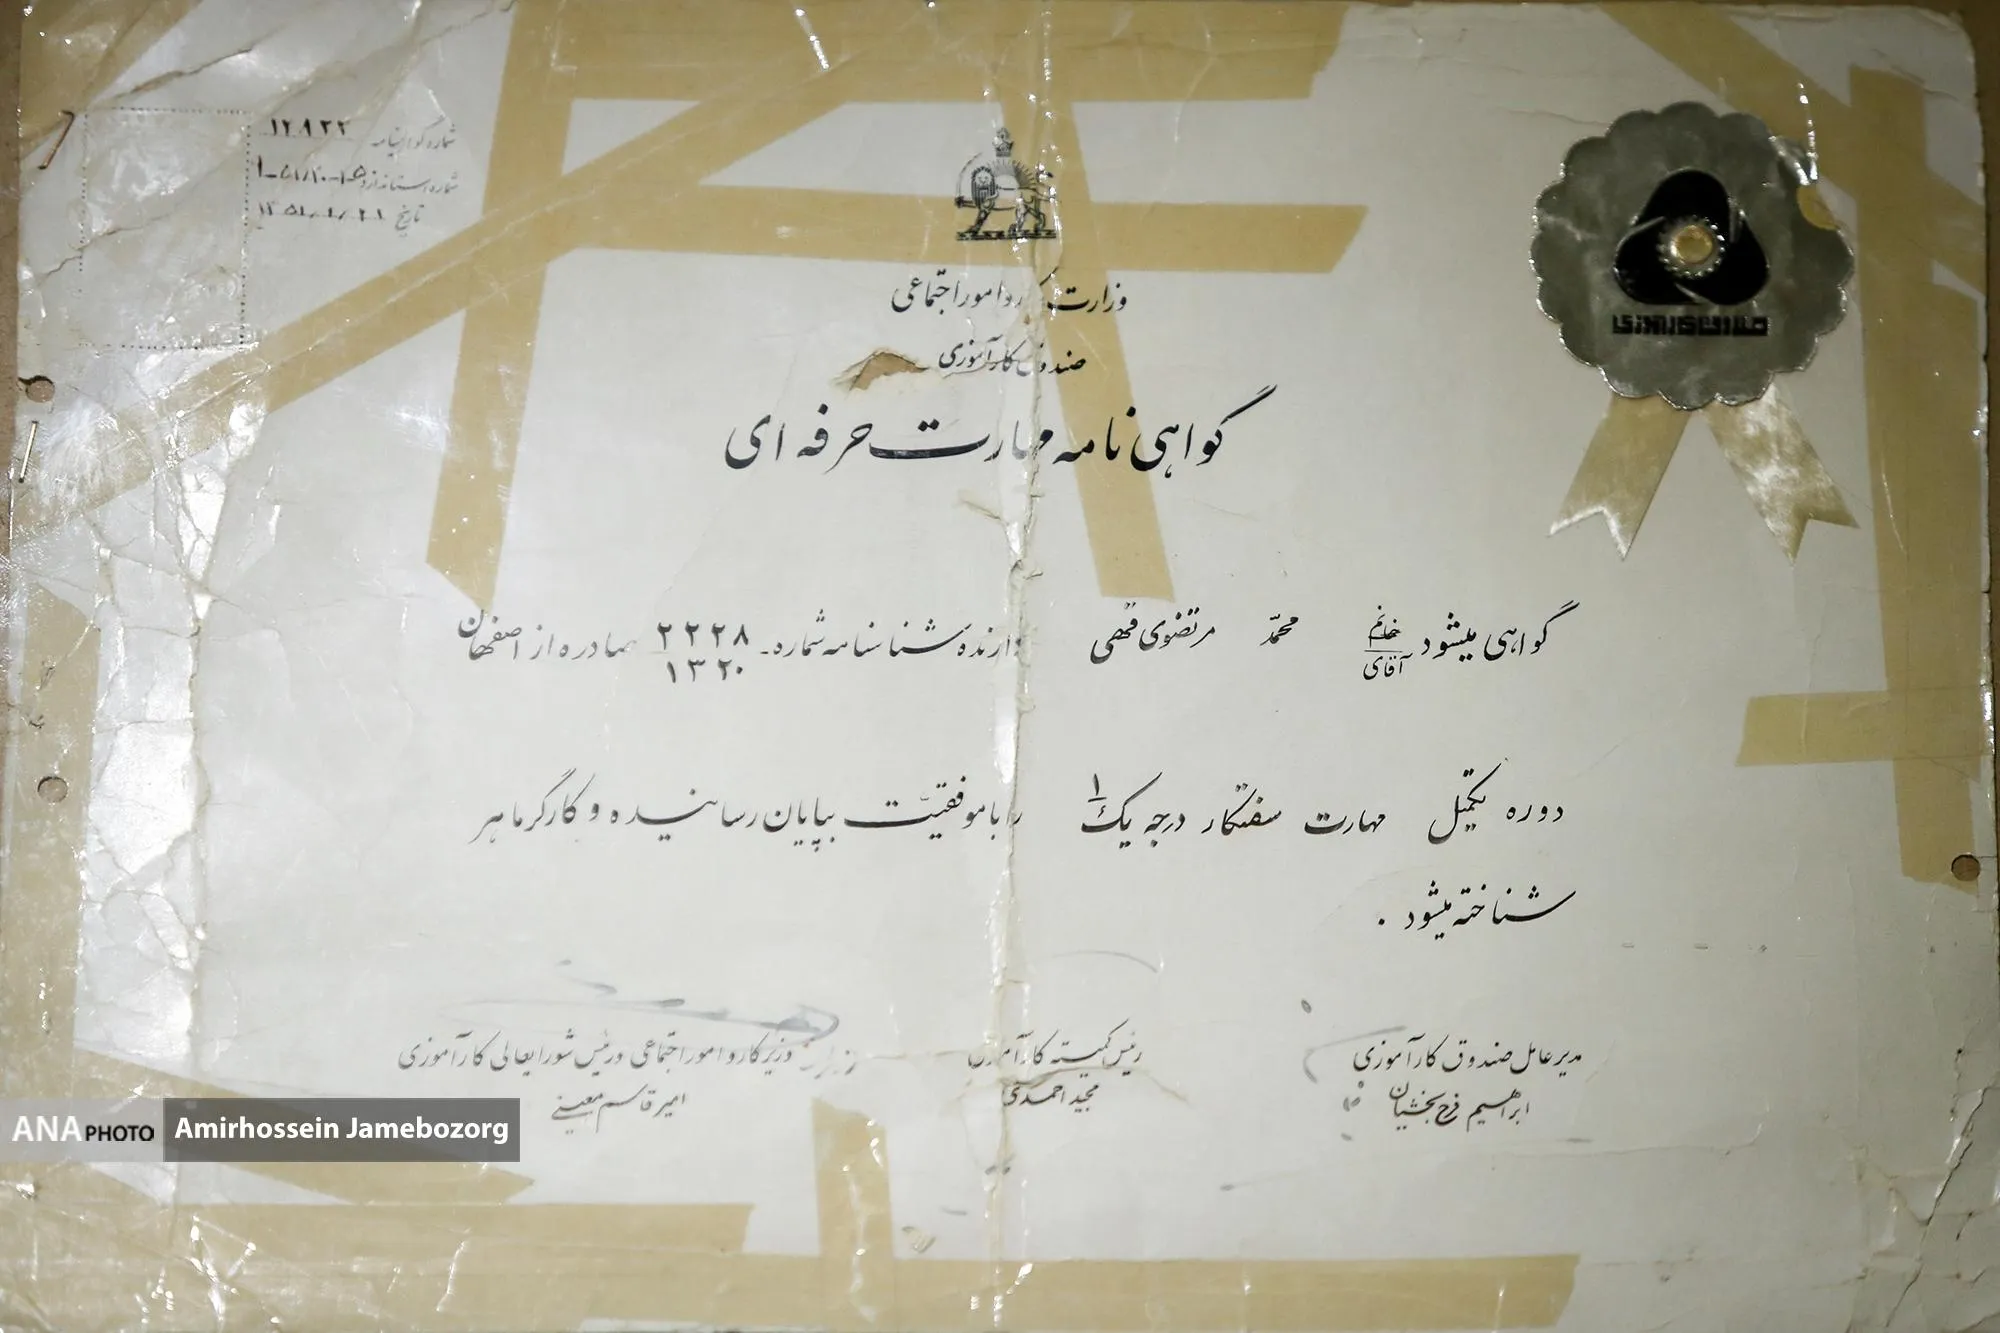 شماره گواهینامه ۱۲۹۲۲
شماره استاندارد
تاریخ
وزارت کار و امور اجتماعی
صندوق کارآموزی
صندوق کارآموزی
گواهی نامه مهارت حرفه ای
گواهی میشود خانم / آقای محمد مرتضوی قهی دارنده شناسنامه شماره ۲۲۲۸ / ۱۳۲۰ صادره از اصفهان
دوره تکمیل مهارت سفتکار درجه یک ۱ را با موفقیت بپایان رسانیده و کارگر ماهر
شناخته میشود .
مدیر عامل صندوق کارآموزی
ابراهیم فرح بخشیان
رئیس کمیته کارآموزی
مجید احمدی
وزیر کار و امور اجتماعی و رئیس شورایعالی کارآموزی
امیر قاسم معینی
ANA PHOTO Amirhossein Jamebozorg